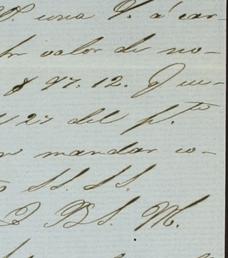 una P. á car-
valor de no-
$ 97.12. Que-
27 del p.to
mandar co-
SS. SS.
Q B S. M.